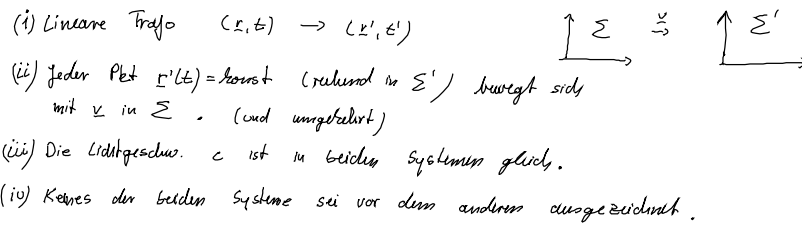 (i) Lineare Trafo (r, t) → (r', t') Σ v Σ'
(ii) Jeder Pkt r'(t) = konst (ruhend in Σ') bewegt sich
mit v in Σ . (und umgekehrt)
(iii) Die Lichtgeschw. c ist in beiden Systemen gleich.
(iv) Keines der beiden Systeme sei vor dem anderen ausgezeichnet.